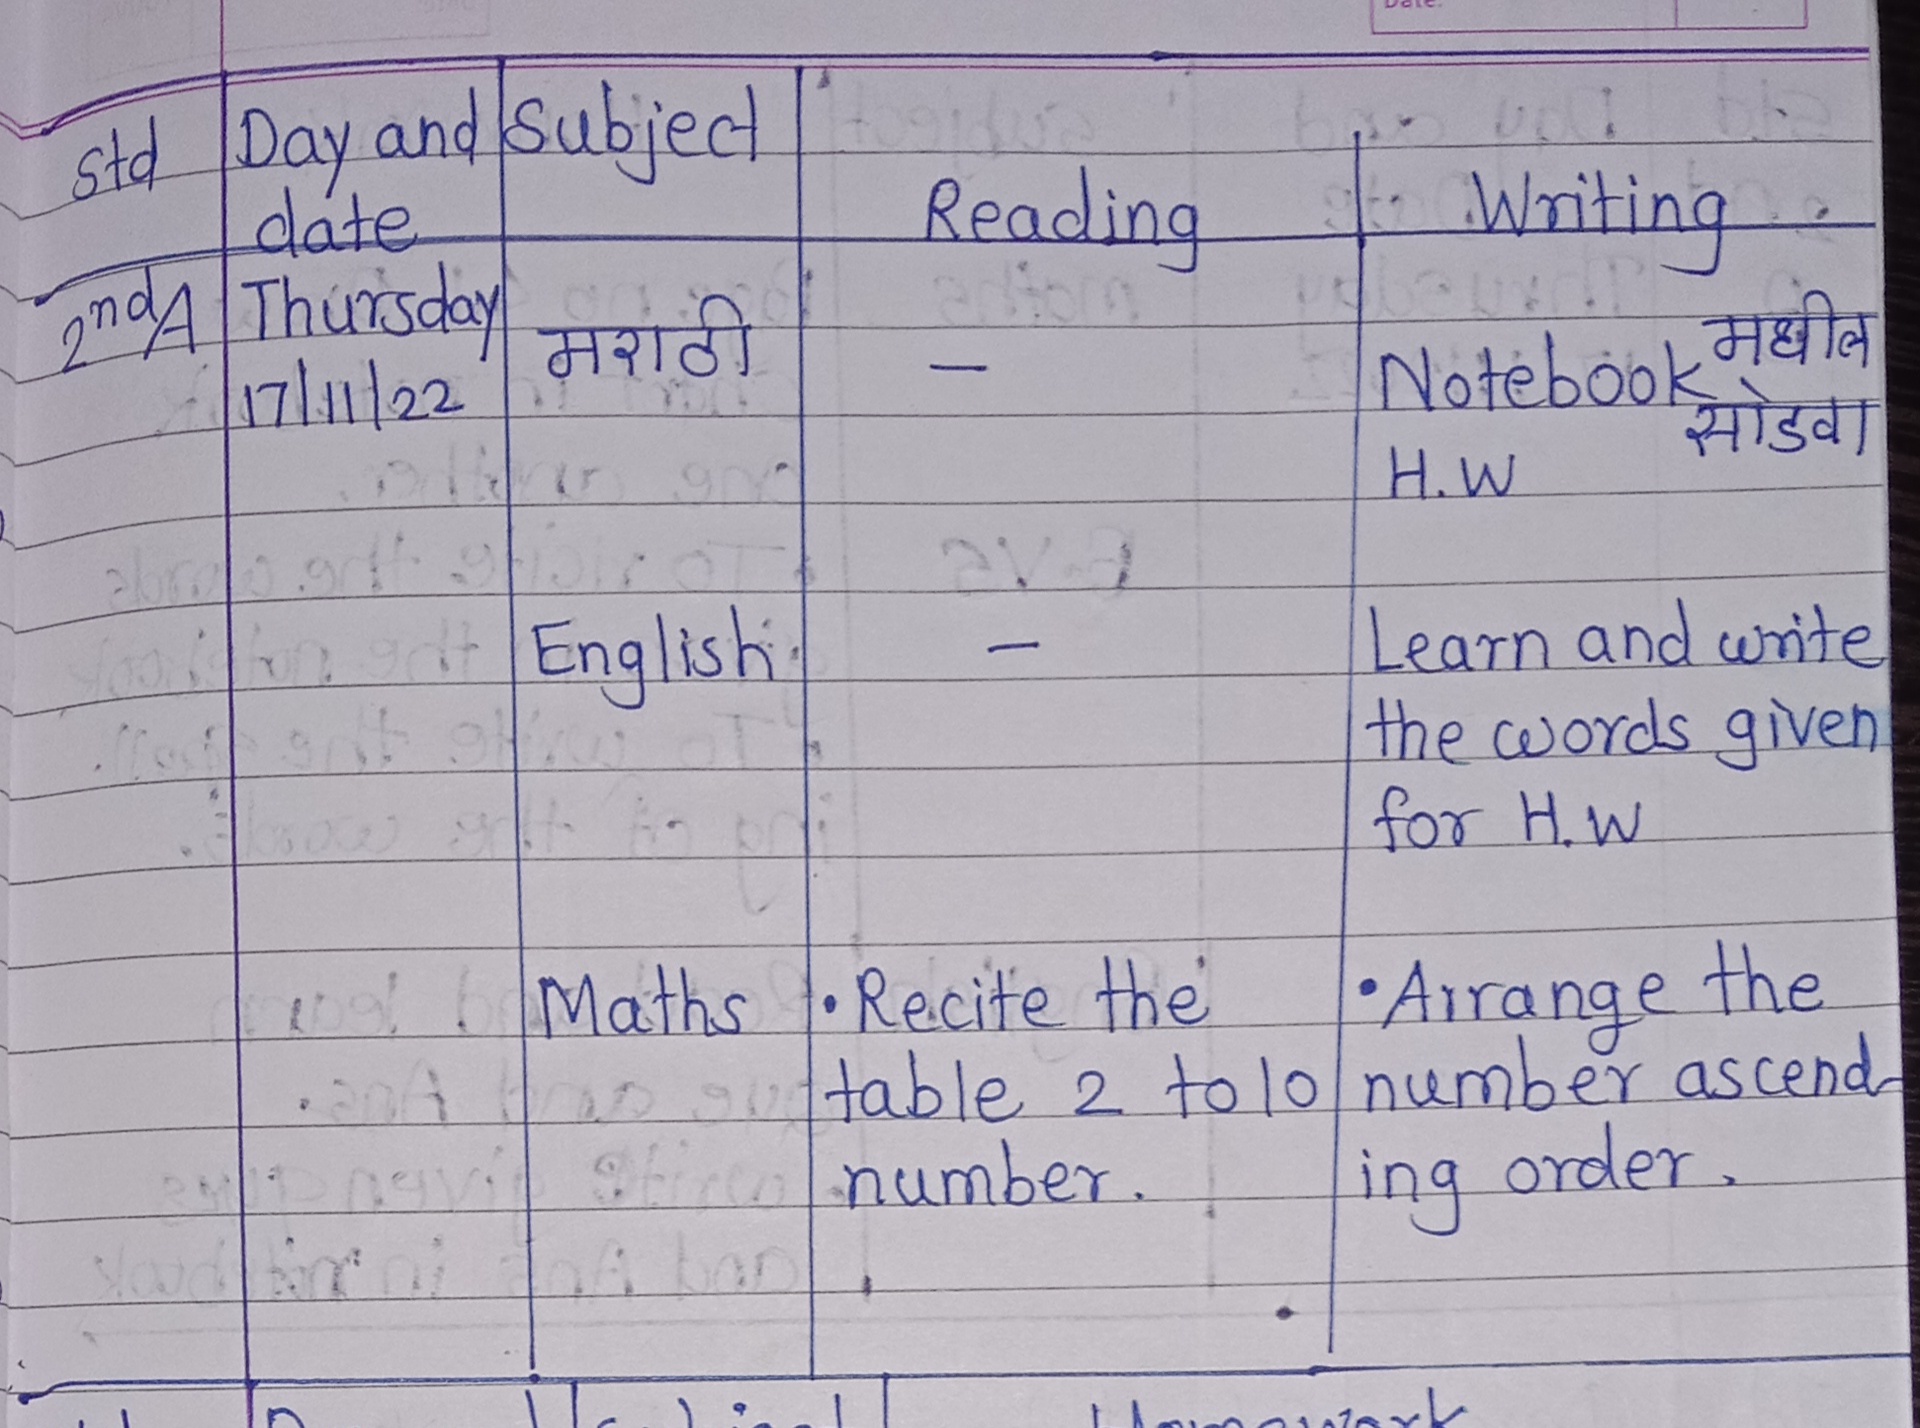 Date:
Std Day and date Subject Reading Writing
2nd A Thursday मराठी — Notebook मधील
17/11/22 सोडवा
H.W
English. — Learn and write
the words given
for H.W
Maths • Recite the • Arrange the
table 2 to 10 number ascend-
number. ing order.
Homework